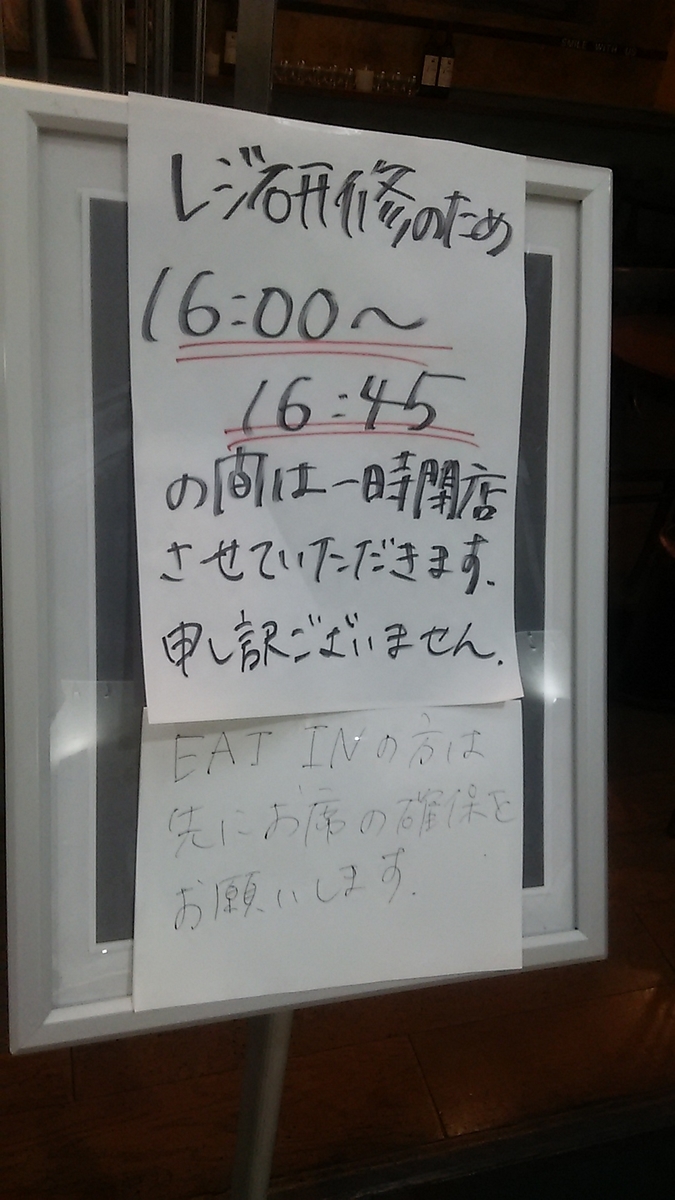 レジ研修のため
16:00〜
16:45
の間は一時閉店
させていただきます.
申し訳ございません.
EAT INの方は
先にお席の確保を
お願いします.